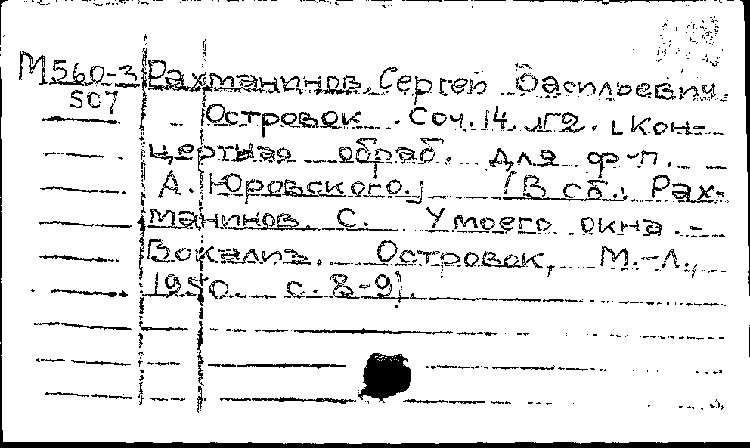 М560-3 Рахманинов, Сергей Васильевич.
507 Островок. Соч. 14 №2. [Кон-
цертная обраб. для ф-п.
А. Юровского.] (В сб.: Рах-
манинов, С. У моего окна. -
Вокализ. Островок, М.-Л.,
1950. с. 8-9).